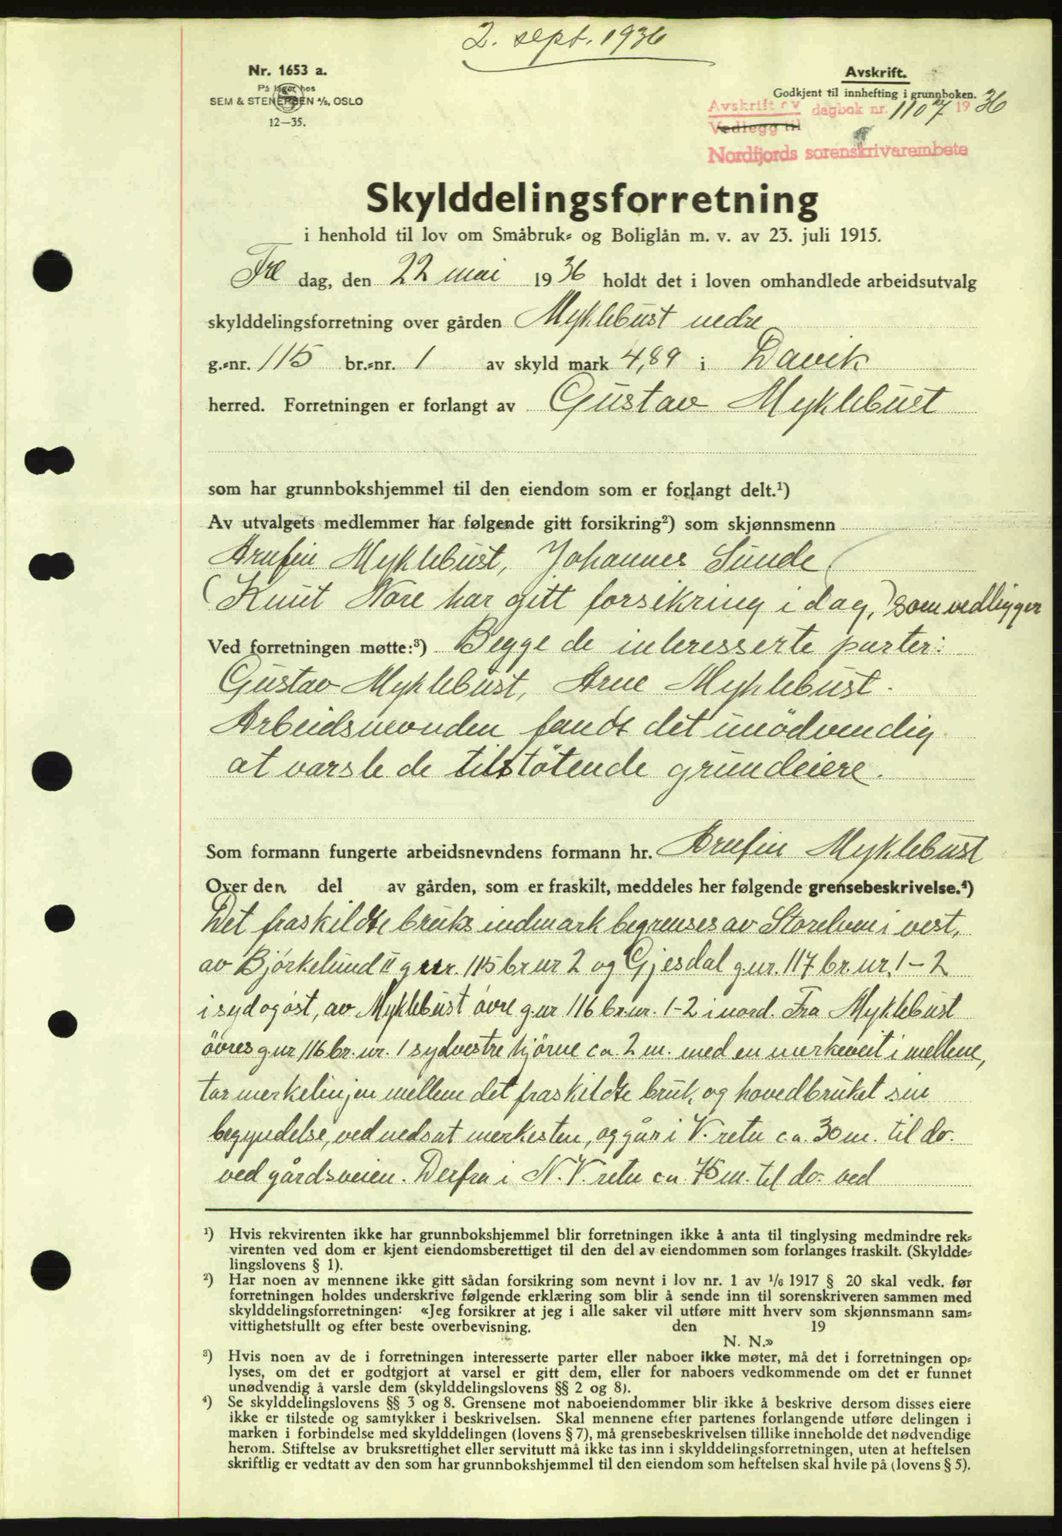 2. sept. 1936
Nr. 1653 a.
På lager hos
SEM & STENERSEN A/S, OSLO
12—35.
Avskrift.
Godkjent til innhefting i grunnboken.
Avskrift av dagbok nr. 1107 1936
Vedlegg til
Nordfjords sorenskrivarembete
Skylddelingsforretning
i henhold til lov om Småbruk- og Boliglån m. v. av 23. juli 1915.
Fre dag, den 22 mai 1936 holdt det i loven omhandlede arbeidsutvalg
skylddelingsforretning over gården Myklebust nedre
g.-nr. 115 br.-nr. 1 av skyld mark 4,89 i Davik
herred. Forretningen er forlangt av Gustav Myklebust
som har grunnbokshjemmel til den eiendom som er forlangt delt.¹)
Av utvalgets medlemmer har følgende gitt forsikring²) som skjønnsmenn
Arnfin Myklebust, Johannes Sunde
(Knut Nore har gitt forsikring i dag,) som vedligger
Ved forretningen møtte:³) Begge de interesserte parter:
Gustav Myklebust, Arne Myklebust.
Arbeidsnevnden fandt det unödvendig
at varsle de tilstøtende grundeiere.
Som formann fungerte arbeidsnevndens formann hr. Arnfin Myklebust
Over den del av gården, som er fraskilt, meddeles her følgende grensebeskrivelse.⁴)
Det fraskildte bruks indmark begrenses av Storelven i vest,
av Bjørkelund II g.nr. 115 br.nr 2 og Gjesdal g.nr. 117 br.nr. 1-2
i syd og øst, av Myklebust övre g.nr 116 br.nr. 1-2 i nord. Fra Myklebust
övres g.nr 116 br.nr. 1 sydvestre hjörne ca. 2 m. med en merkeveit i mellem,
tar merkelinjen mellem det fraskildte bruk og hovedbruket sin
begyndelse, ved nedsat merkesten, og går i V. retn ca. 30 m. til do.
ved gårdsveien. Derfra i N.V. retn ca. 75 m. til do. ved
¹) Hvis rekvirenten ikke har grunnbokshjemmel blir forretningen ikke å anta til tinglysing medmindre rek-
virenten ved dom er kjent eiendomsberettiget til den del av eiendommen som forlanges fraskilt. (Skyldde-
lingslovens § 1).
²) Har noen av mennene ikke gitt sådan forsikring som nevnt i lov nr. 1 av ¹/₆ 1917 § 20 skal vedk. før
forretningen holdes underskrive følgende erklæring som blir å sende inn til sorenskriveren sammen med
skylddelingsforretningen: «Jeg forsikrer at jeg i alle saker vil utføre mitt hverv som skjønnsmann sam-
vittighetsfullt og efter beste overbevisning. den 19
N. N.»
³) Hvis noen av de i forretningen interesserte parter eller naboer ikke møter, må det i forretningen op-
lyses, om det er godtgjort at varsel er gitt dem, eller for naboers vedkommende om det er funnet
unødvendig å varsle dem (skylddelingslovens §§ 2 og 8).
⁴) Se skylddelingslovens §§ 3 og 8. Grensene mot naboeiendommer blir ikke å beskrive dersom disses eiere
ikke er tilstede og samtykker i beskrivelsen. Skal mennene efter partenes forlangende utføre delingen i
marken i forbindelse med skylddelingen (lovens § 7), må grensebeskrivelsen tillike inneholde det nødvendige
herom. Stiftelse av bruksrettighet eller servitutt må ikke tas inn i skylddelingsforretningen, uten at heftelsen
skriftlig er vedtatt av den som har grunnbokshjemmel til den eiendom som heftelsen skal hvile på (lovens § 5).